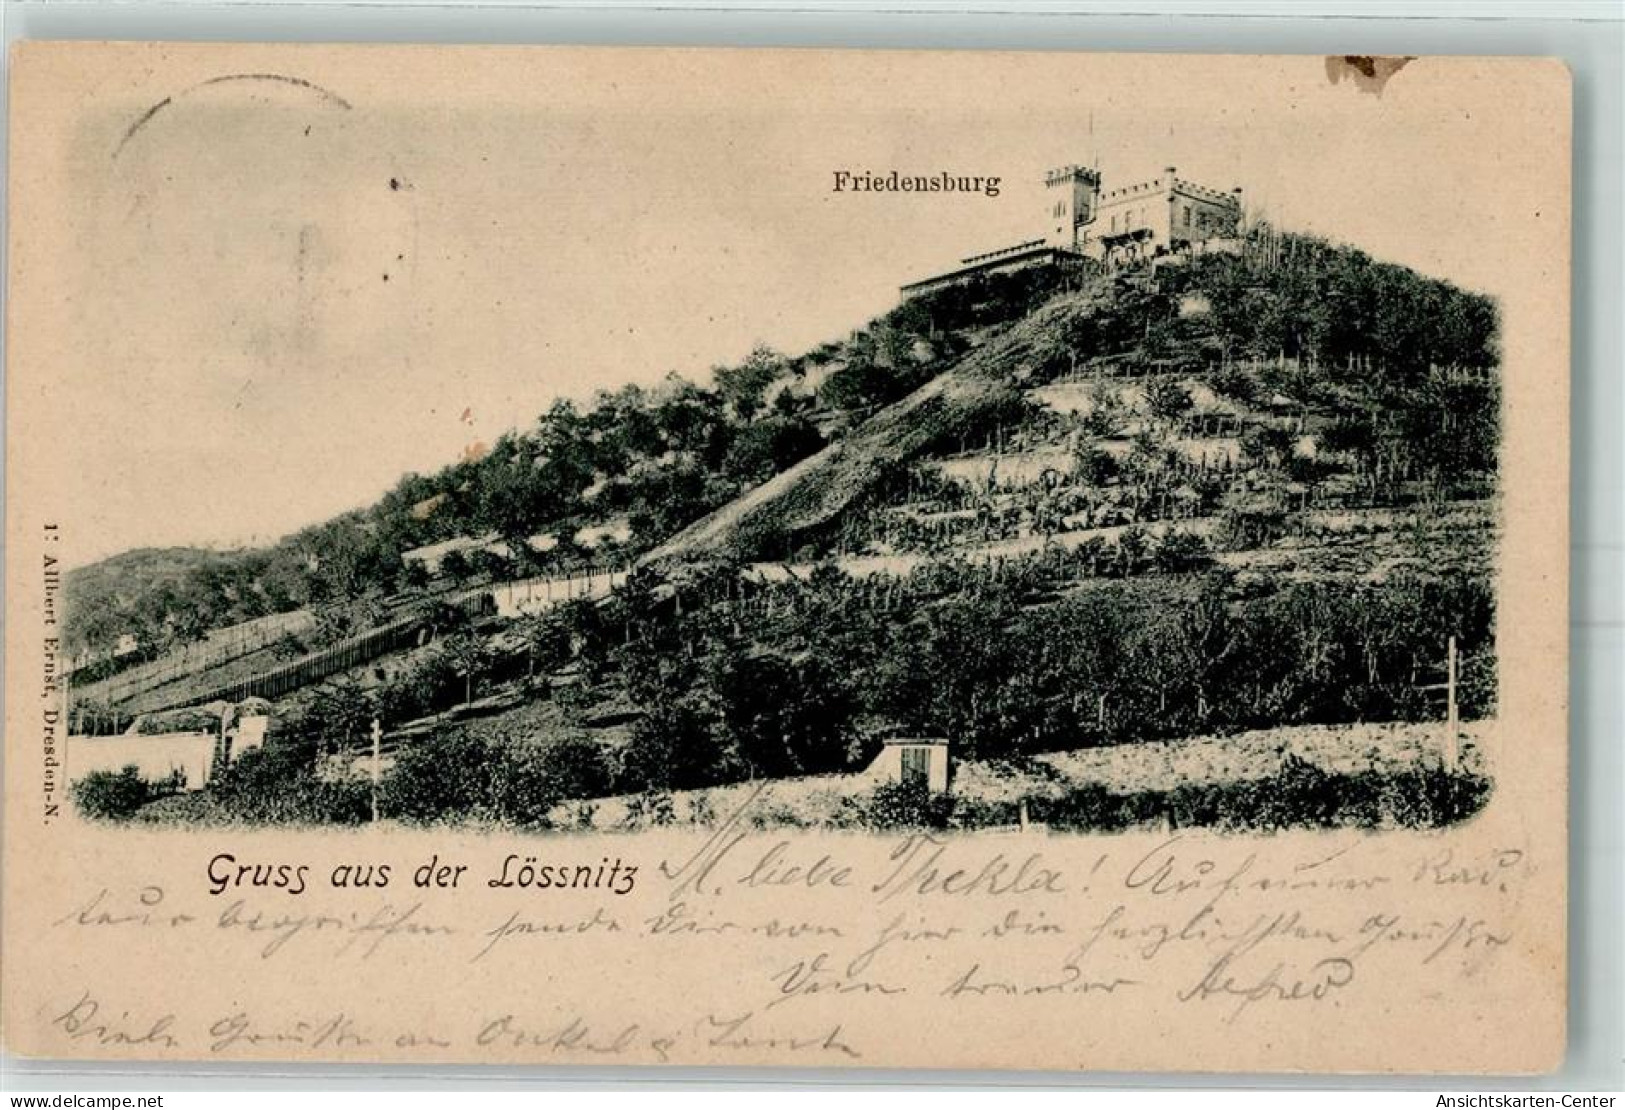 Friedensburg
1: Albert Ernst, Dresden-N.
Gruss aus der Lössnitz
M. liebe Thekla! Auf einer Rad-
tour begriffen sende Dir von hier die herzlichsten Grüsse
Dein treuer Alfred.
Viele Grüße an Onkel u Tante
delcampe.net
Ansichtskarten-Center